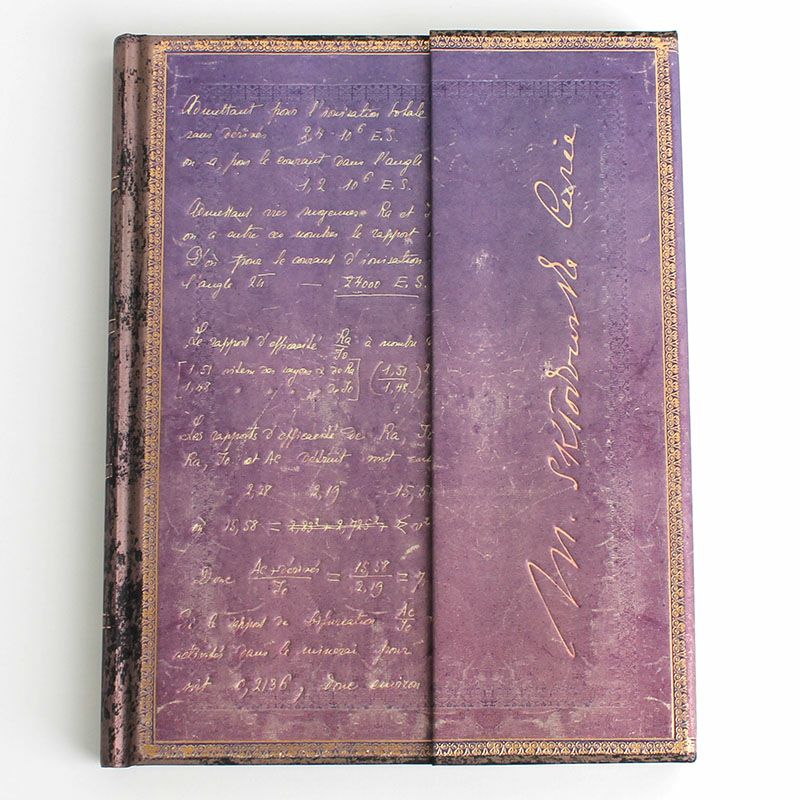 Admettant pour l'ionisation totale
sans dérivés 24 · 10⁶ E.S.
on a, pour le courant dans l'angle
1,2 · 10⁶ E.S.
Admettant moyennes Ra et
on a entre ces nombres le rapport
D'où pour le courant d'ionisation
l'angle 2π — 24000 E.S.
Le rapport d'efficacité Ra/Io à nombre
[1,51 vitesse des rayons α de Ra] (1,51/1,48)²
1,48 " " " de Io
Les rapports d'efficacité de Ra, Io
Ra, Io et Ac détruit sont
2,28 2,19 15,58
où 15,58 =
Donc Ac+dérivés/Io = 15,58/2,19 = 7,
De le rapport de bifurcation Ac/Io
activités dans le minerai pour
soit 0,2136, donc environ
M. Skłodowska Curie